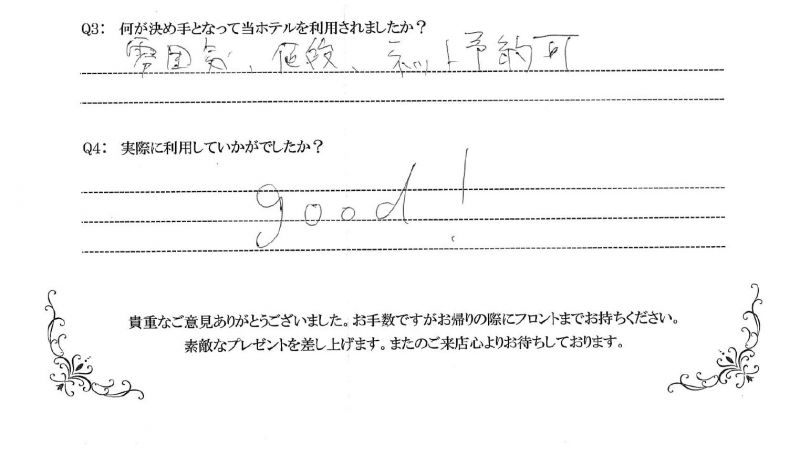 Q3： 何が決め手となって当ホテルを利用されましたか？
雰囲気、値段、ネット予約可
Q4： 実際に利用していかがでしたか？
good!
貴重なご意見ありがとうございました。お手数ですがお帰りの際にフロントまでお持ちください。
素敵なプレゼントを差し上げます。またのご来店心よりお待ちしております。